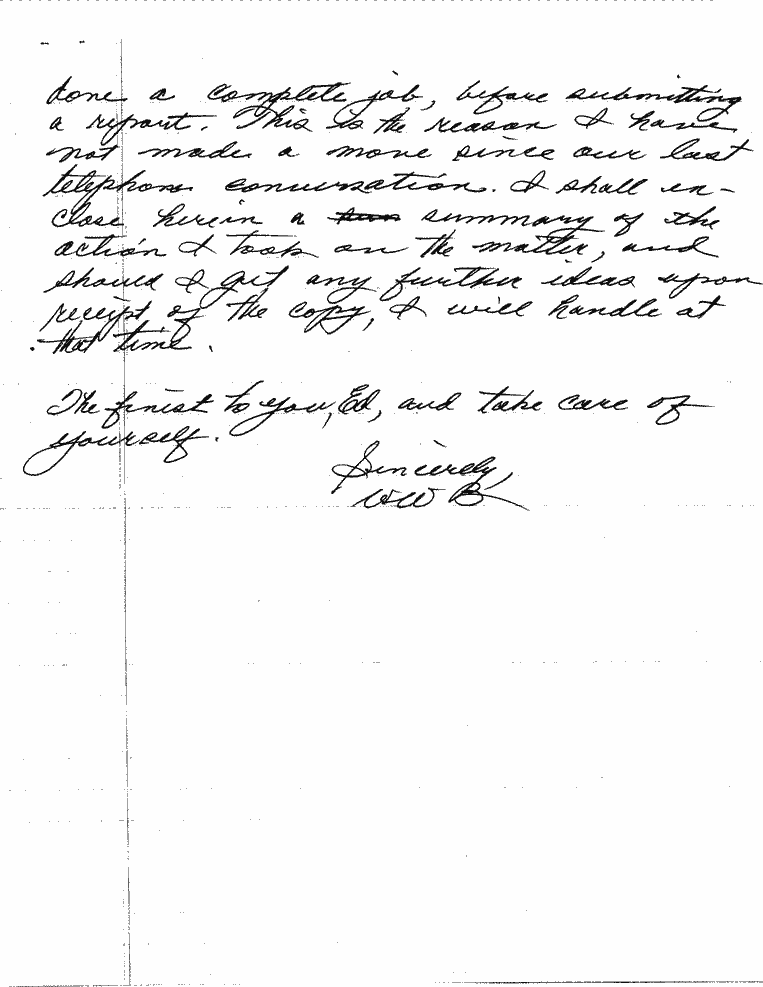 done a complete job, before submitting
a report. This is the reason I have
not made a move since our last
telephone conversation. I shall en-
close herein a summary of the
action I took on the matter, and
should I get any further ideas upon
receipt of the copy, I will handle at
that time.
The finest to you, Ed, and take care of
yourself.
Sincerely,